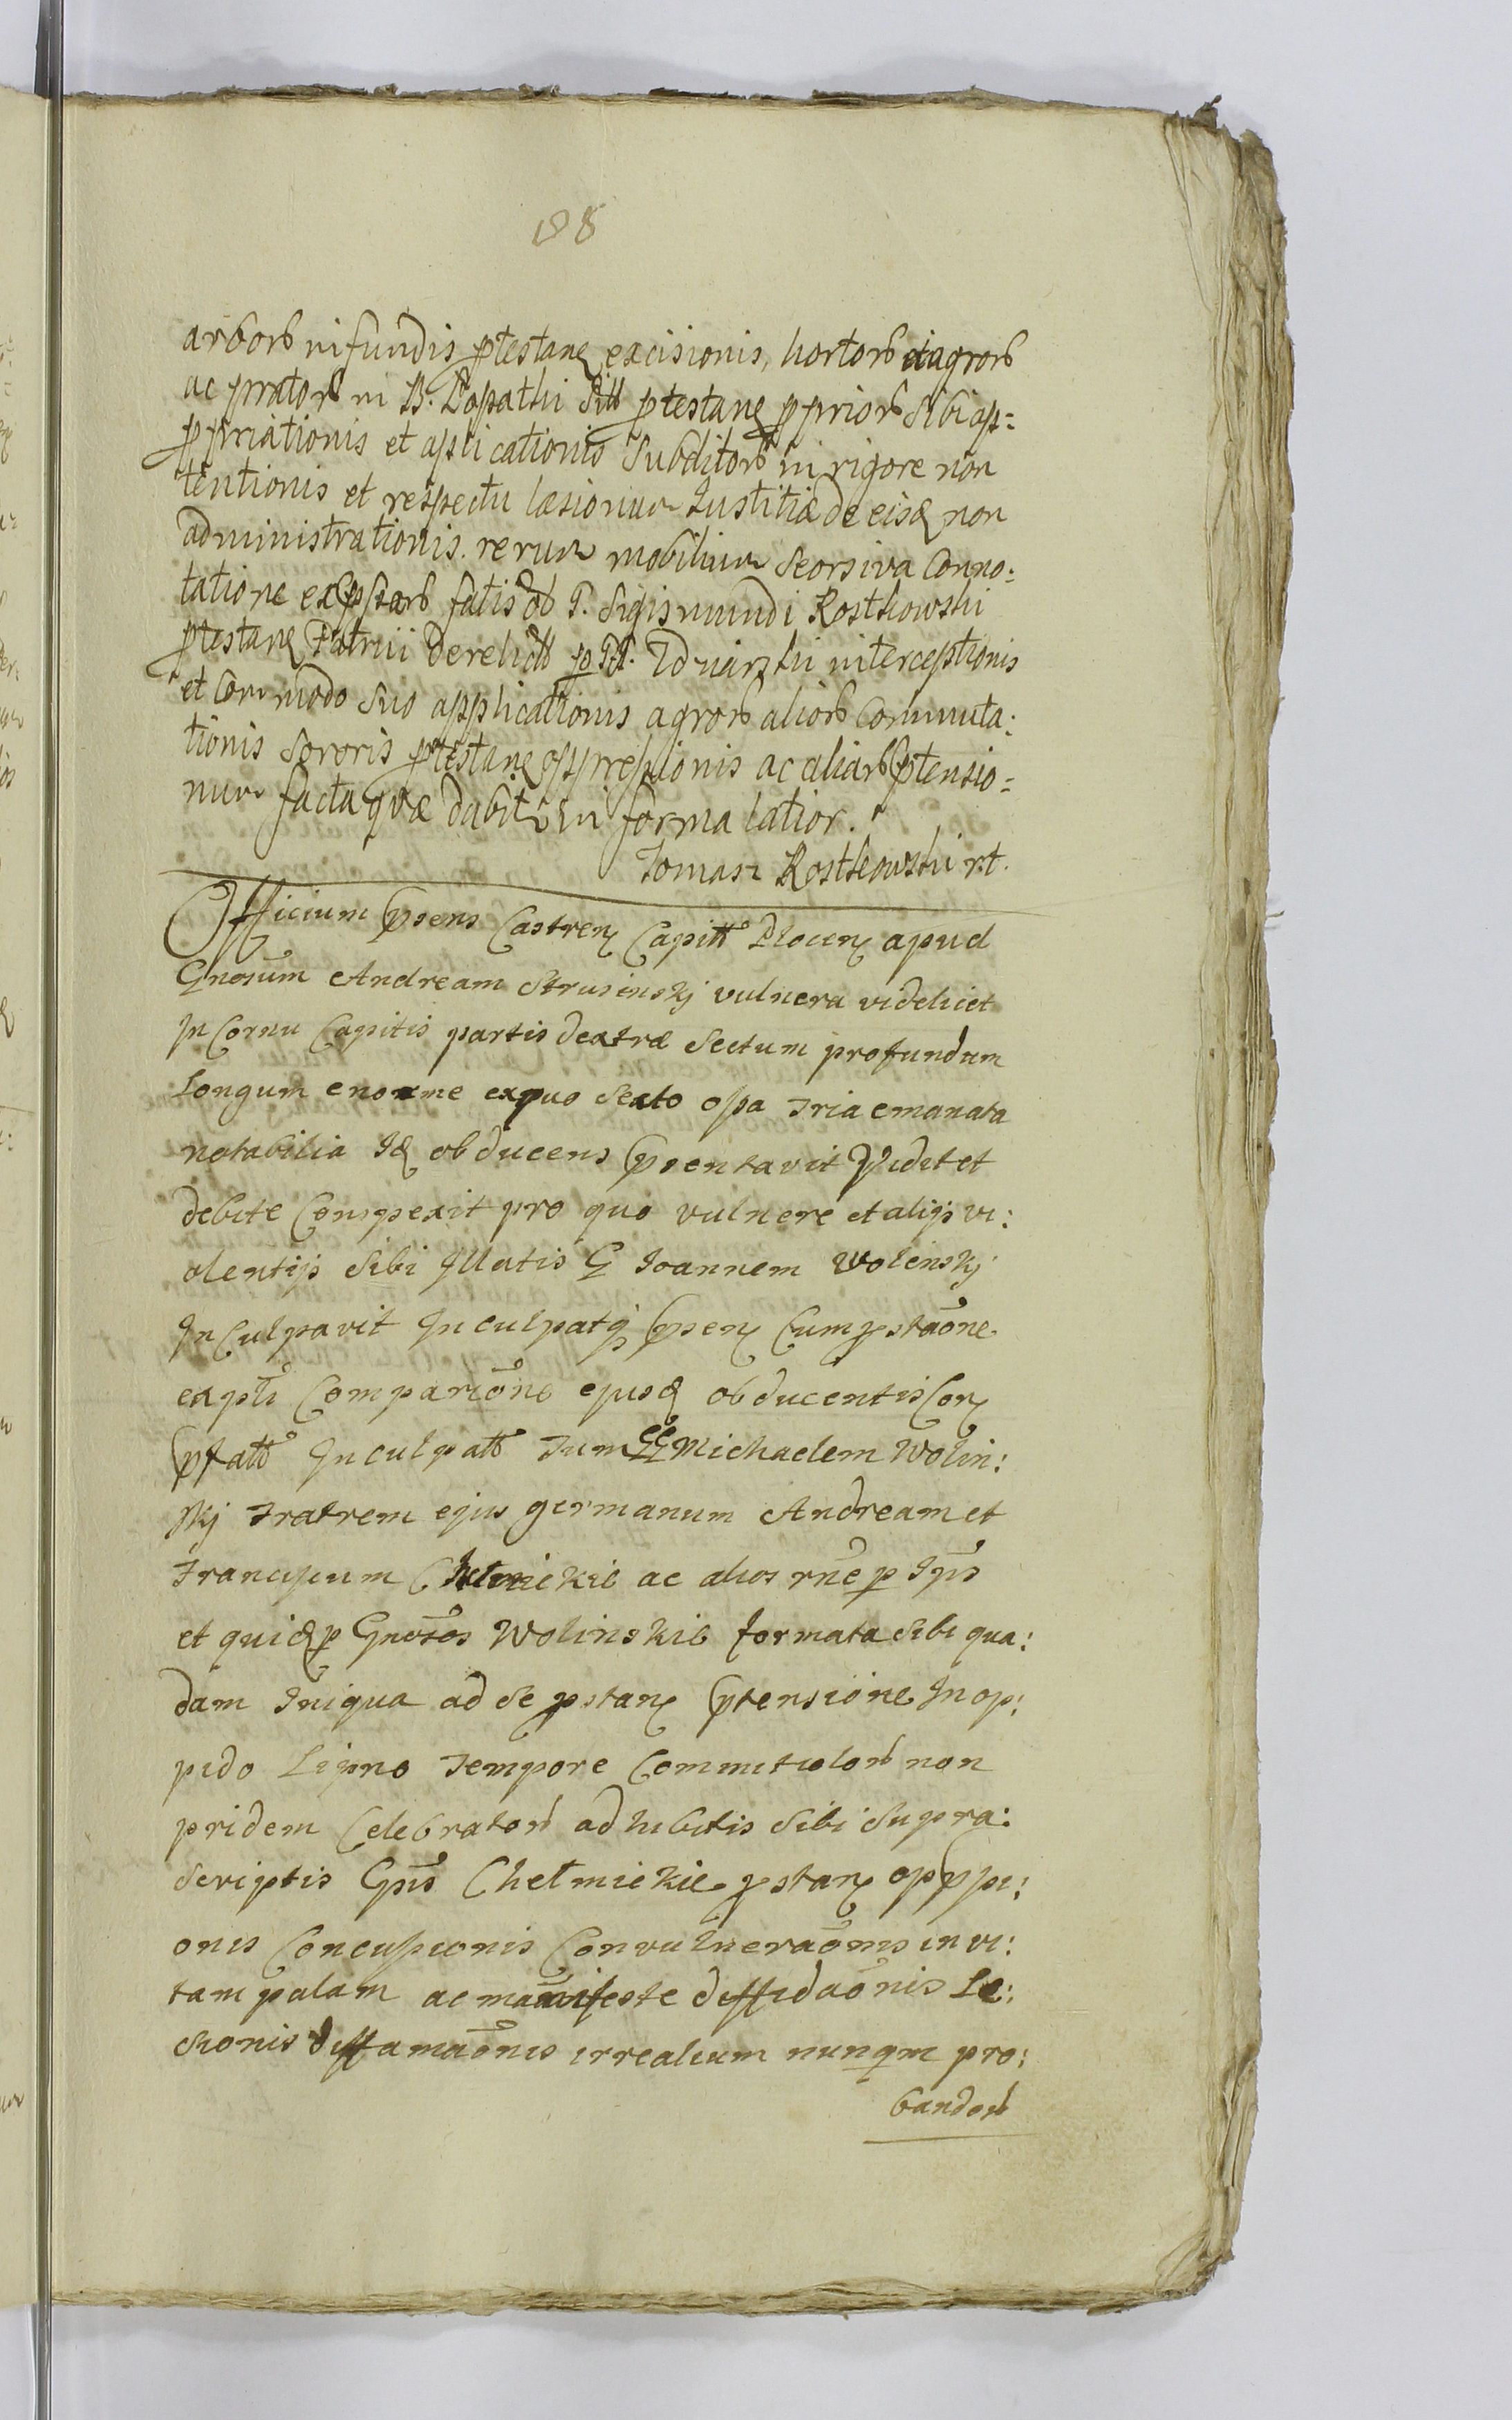 188
arboru in fundis ptestanę excisionis, hortoru et agroru
ac pratoru in B. Łopatki Sitt ptestanę pprioru Sibi ap=
ppriationis et aplicationis Subditoru in rigore non
tentionis et respectu læsionum Justitiæ de eisq non
administrationis. rerum mobilium Seorsiva Conno=
tatione expssaru fatis ol G. Sigismundi Rostkowski
ptestanę Patrui derelictt p GG. Zdniarzki interceptionis
et Commodo Suo applicationis agroru alioru Commuta:
tionis Sororis ptestanę oppressionis ac aliaru ptensio=
num facta quæ dabitr in forma latior.
Tomasz Rostkowski rt.
Officium psens Castrenę Capittt Plocenę apud
Gnosum Andream Strusinskj vulnera videlicet
In Cornu Capitis partis dextræ Sectum profundum
Longum enorme ex quo Sexto opa Tria emanata
notabilia Idq obducens psentavit Vidit et
debite Conspexit pro quo vulnere et alijs vi:
olentijs Sibi Illatis G Joannem Wolinskj
InCulpavit Inculpatq psenę Cum pstaōne
expti Compariōne ejusq obducentis Conę
pfatt Inculpatt Tum GG Michaelem Wolin:
skj Fratrem ejus germanum Andream et
Franciscum Chełmickie ac alios rne p Ips
et quidę p Gnosos Wolinskie formata Sibi qua:
dam Iniqua ad Se pstanę ptensione In op:
pido Lipno Tempore Commitioloru non
pridem Celebratoru adhibitis Sibi Supra:
Scriptis Gnis Chełmickie pstanę oppssi:
onis Concussionis Convulneraōnis in vi:
tam palam ac manifeste diffidaōnis Le:
sionis diffamaōnis irrealium nunqm pro:
bandoru